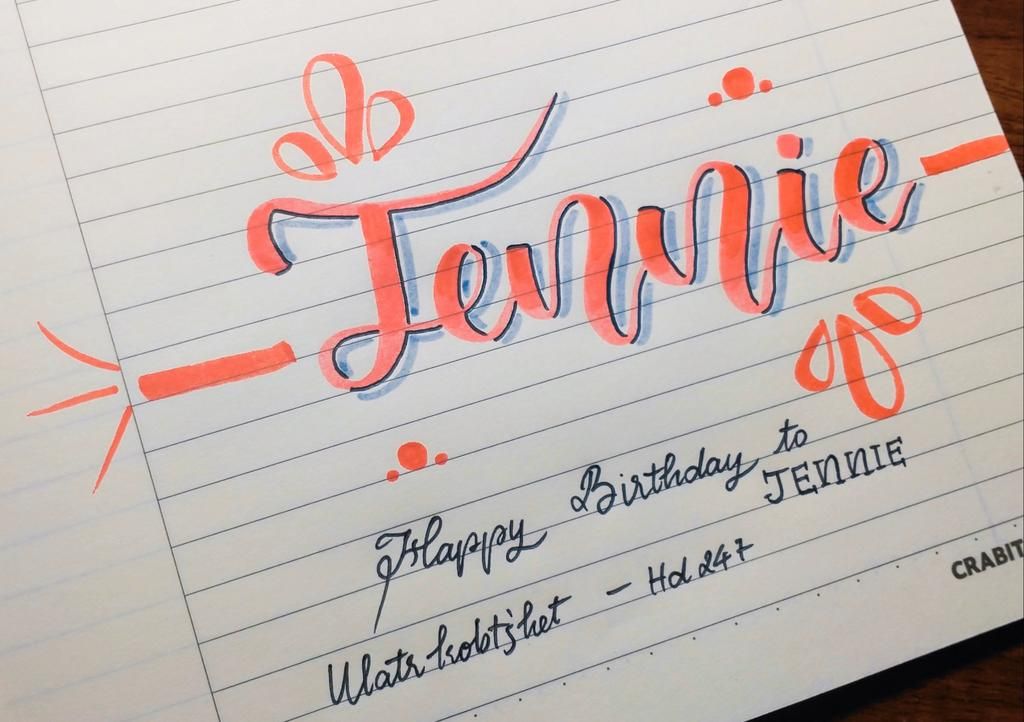 Jennie
Happy Birthday to
JENNIE
- Hd 247
CRABIT